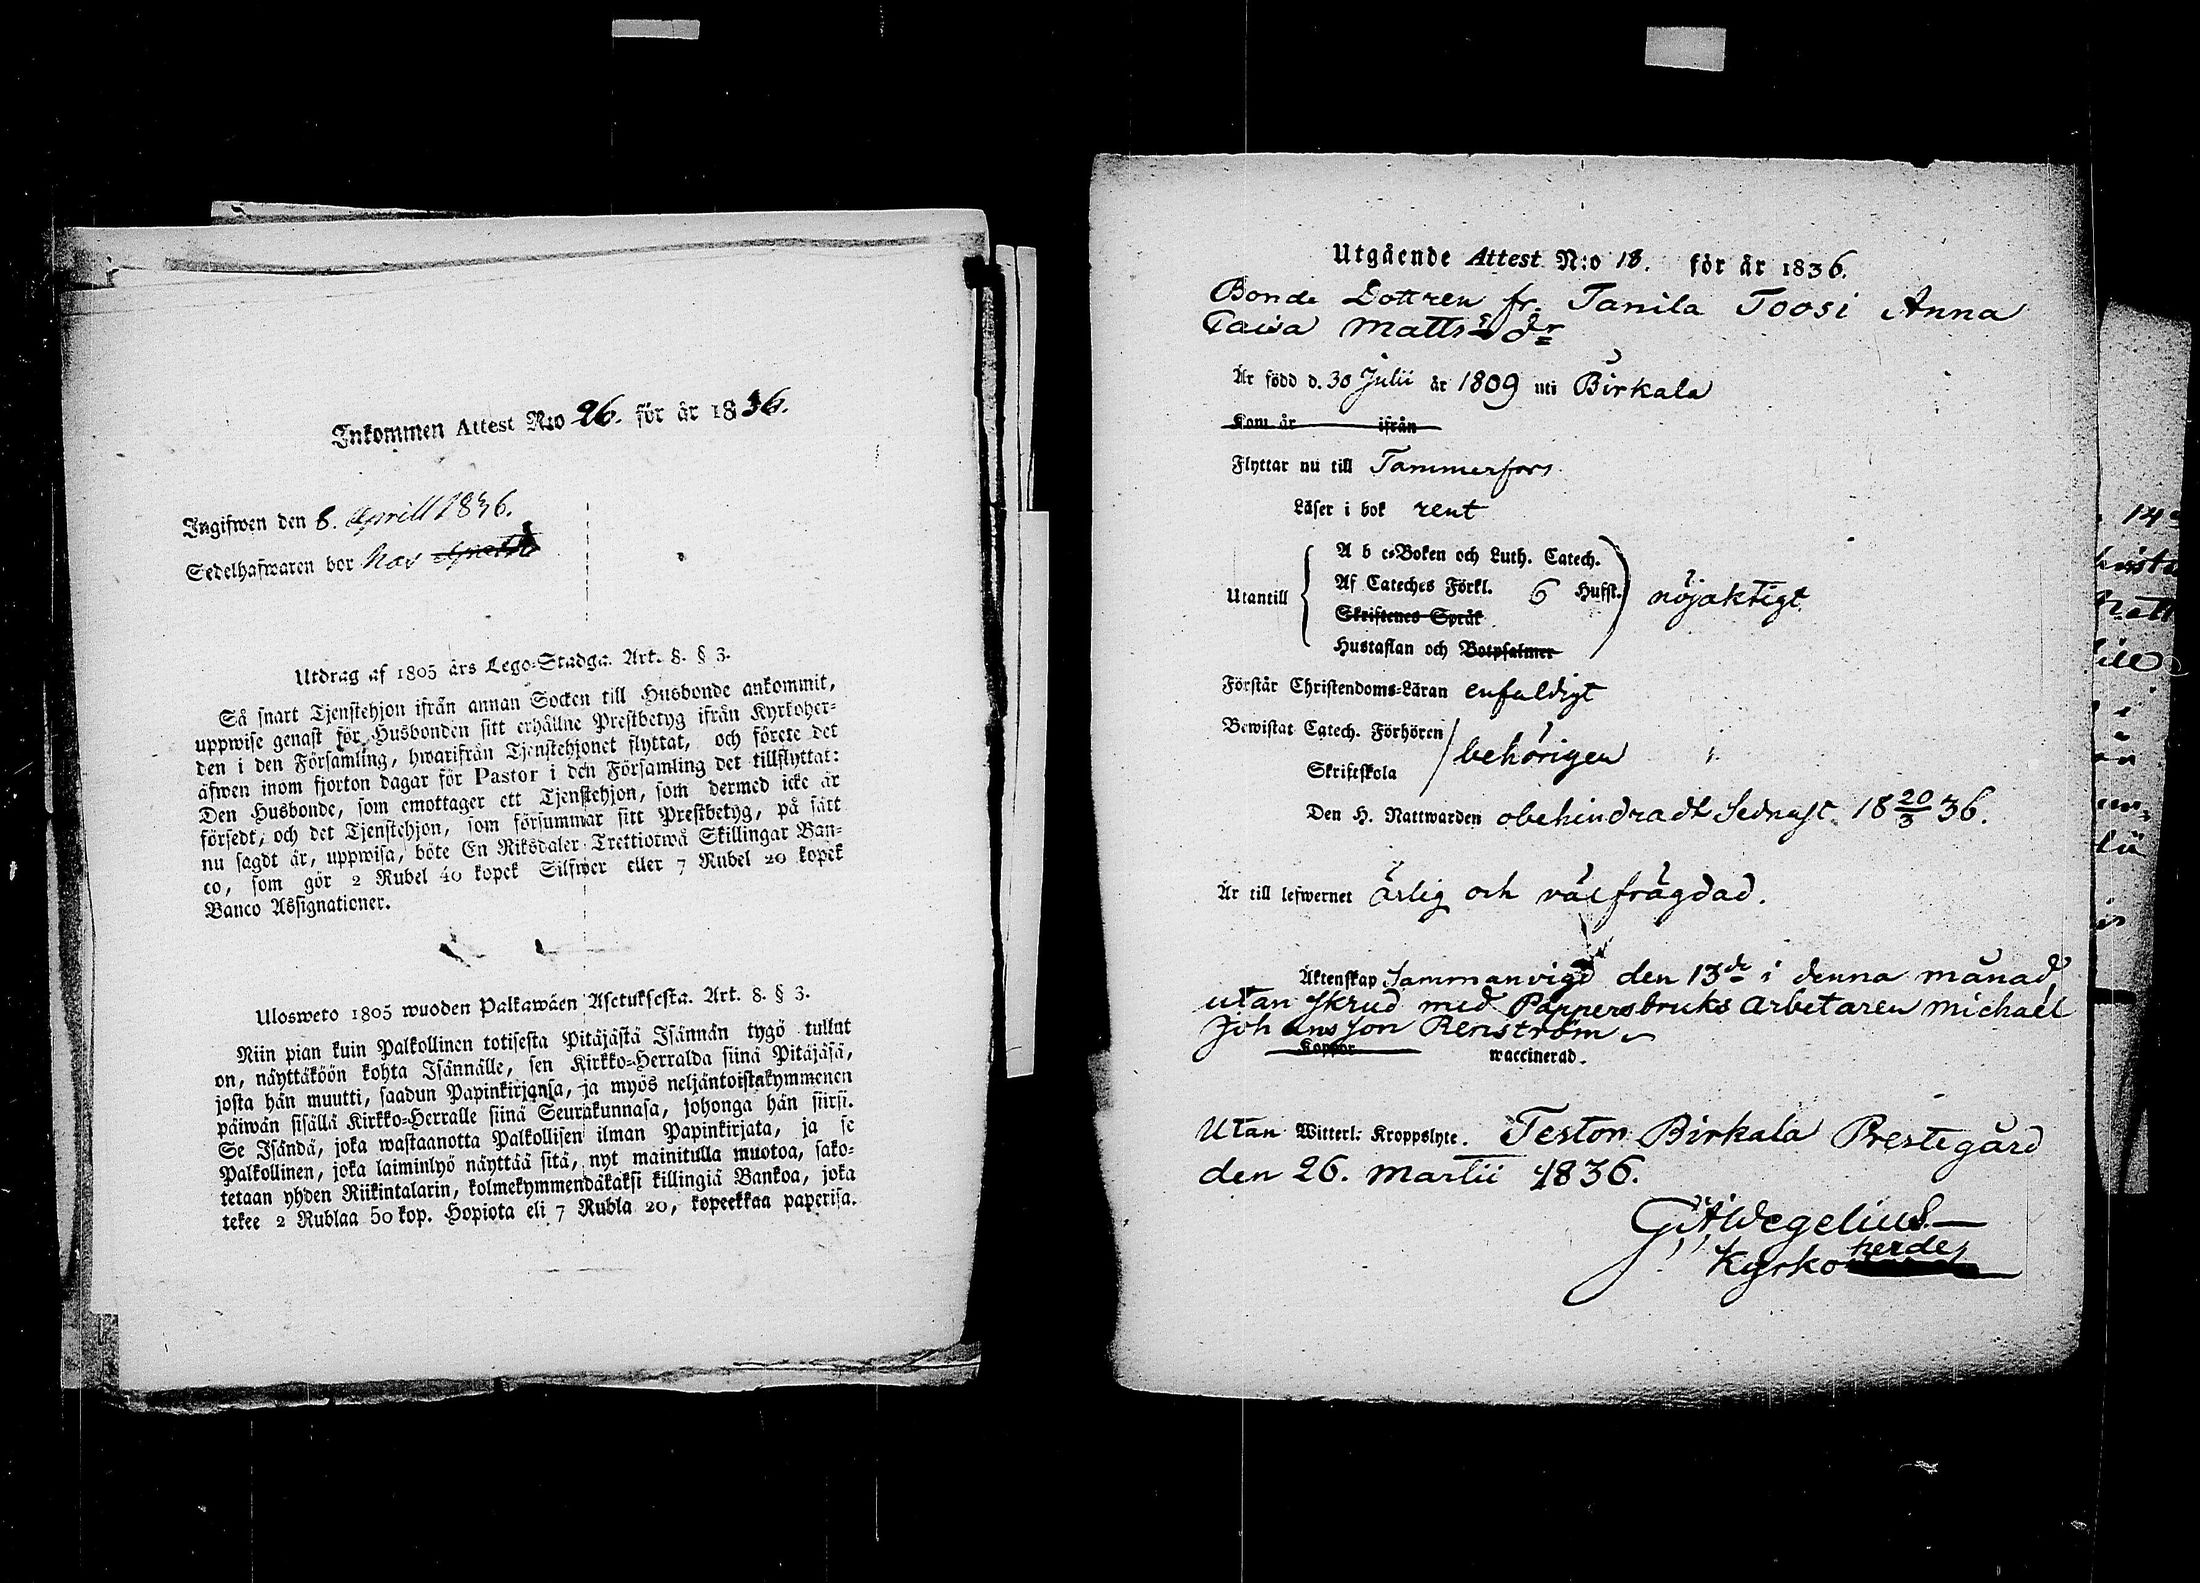 Inkommen Attest N:o 26. för år 1836.
Ingifwen den 8. Aprill 1836.
Sedelhafwaren bor hos
Utdrag af 1805 års Lego-Stadga. Art. 8. § 3.
Så snart Tjenstehjon ifrån annan Socken till Husbonde ankommit,
uppwise genast för Husbonden sitt erhållne Prestbetyg ifrån Kyrkoher-
den i den Församling, hwarifrån Tjenstehjonet flyttat, och förete det
äfwen inom fjorton dagar för Pastor i den Församling det tillflyttat:
Den Husbonde, som emottager ett Tjenstehjon, som dermed icke är
försedt, och det Tjenstehjon, som försummar sitt Prestbetyg, på sätt
nu sagdt är, uppwisa, böte En Riksdaler Trettiotwå Skillingar Ban-
co, som gör 2 Rubel 40 kopek Silfwer eller 7 Rubel 20 kopek
Banco Assignationer.
Ulosweto 1805 wuoden Palkawäen Asetuksesta. Art. 8. § 3.
Niin pian kuin Palkollinen totisesta Pitäjästä Isännän tygö tullut
on, näyttäköön kohta Isännälle, sen Kirkko-Herralda siinä Pitäjäsä,
josta hän muutti, saadun Papinkirjansa, ja myös neljäntoistakymmenen
päiwän sisällä Kirkko-Herralle siinä Seurakunnasa, johonga hän siirsi.
Se Isändä, joka wastaanotta Palkollisen ilman Papinkirjata, ja se
Palkollinen, joka laiminlyö näyttää sitä, nyt mainitulla muotoa, sako-
tetaan yhden Riikintalarin, kolmekymmendäkaksi killingiä Bankoa, joka
tekee 2 Rublaa 50 kop. Hopiota eli 7 Rubla 20, kopeekkaa paperisa.
Utgående Attest N:o 18. för år 1836.
Bonde Dottren fr. Tanila Toosi Anna
Caisa Matts dr
Är född d. 30 Julii år 1809 uti Birkala
Kom år ifrån
Flyttar nu till Tammerfors
Läser i bok rent
A b c-Boken och Luth. Catech.
Utantill Af Cateches Förkl. 6 Hufst. nöjaktigt
Skriftenes Språk
Hustaflan och Botpsalmer
Förstår Christendoms-Läran enfaldigt
Bewistat Catech. Förhören
Skriftskola behörigen
Den H. Nattwarden obehindradt Sednast 18 20/3 36.
Är till lefwernet ärlig och välfrägdad.
Äktenskap Sammanvigd den 13de i denna månad
utan skrud med Pappersbruks Arbetaren Michaël
Johansson Renström
Koppor waccinerad.
Utan Witterl: Kroppslyte. Teston Birkala Prestegård
den 26. Martii 1836.
G A Wegelius
Kyrkoherde